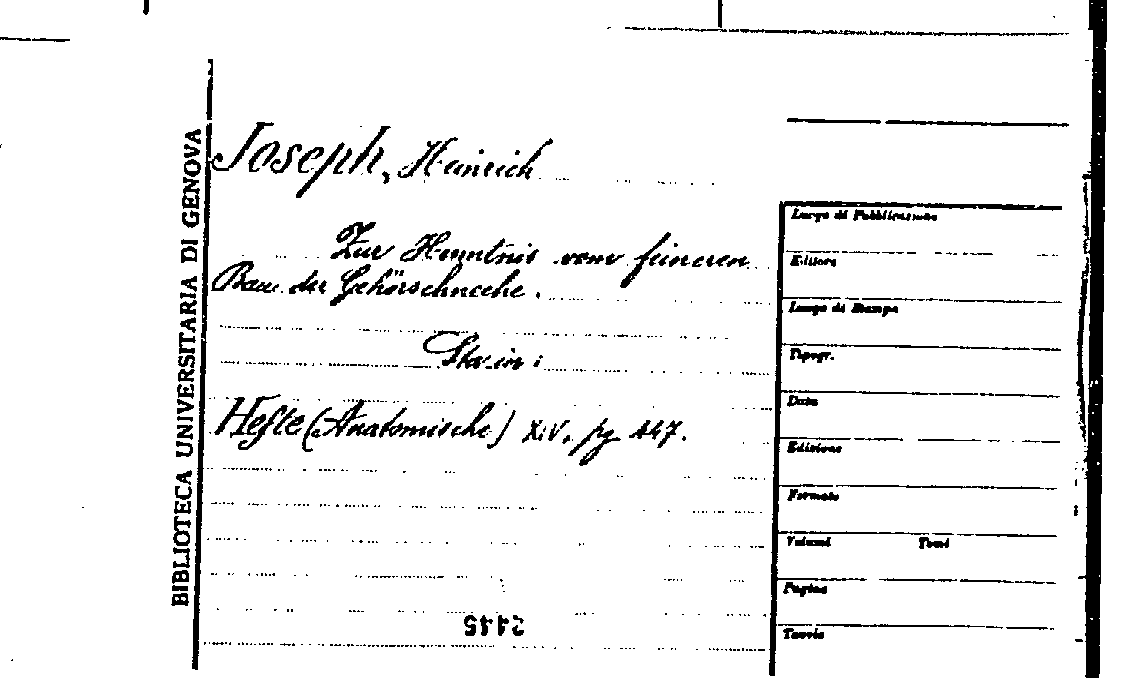 BIBLIOTECA UNIVERSITARIA DI GENOVA
Joseph, Heinrich
Zur Kenntnis vom feineren
Bau der Gehörschnecke.
Sta in:
Hefte (Anatomische) XIV, pg 447.
2445
Luogo di Pubblicazione
Editore
Luogo di Stampa
Tipogr.
Data
Edizione
Formato
Volumi Tomi
Pagine
Tavole